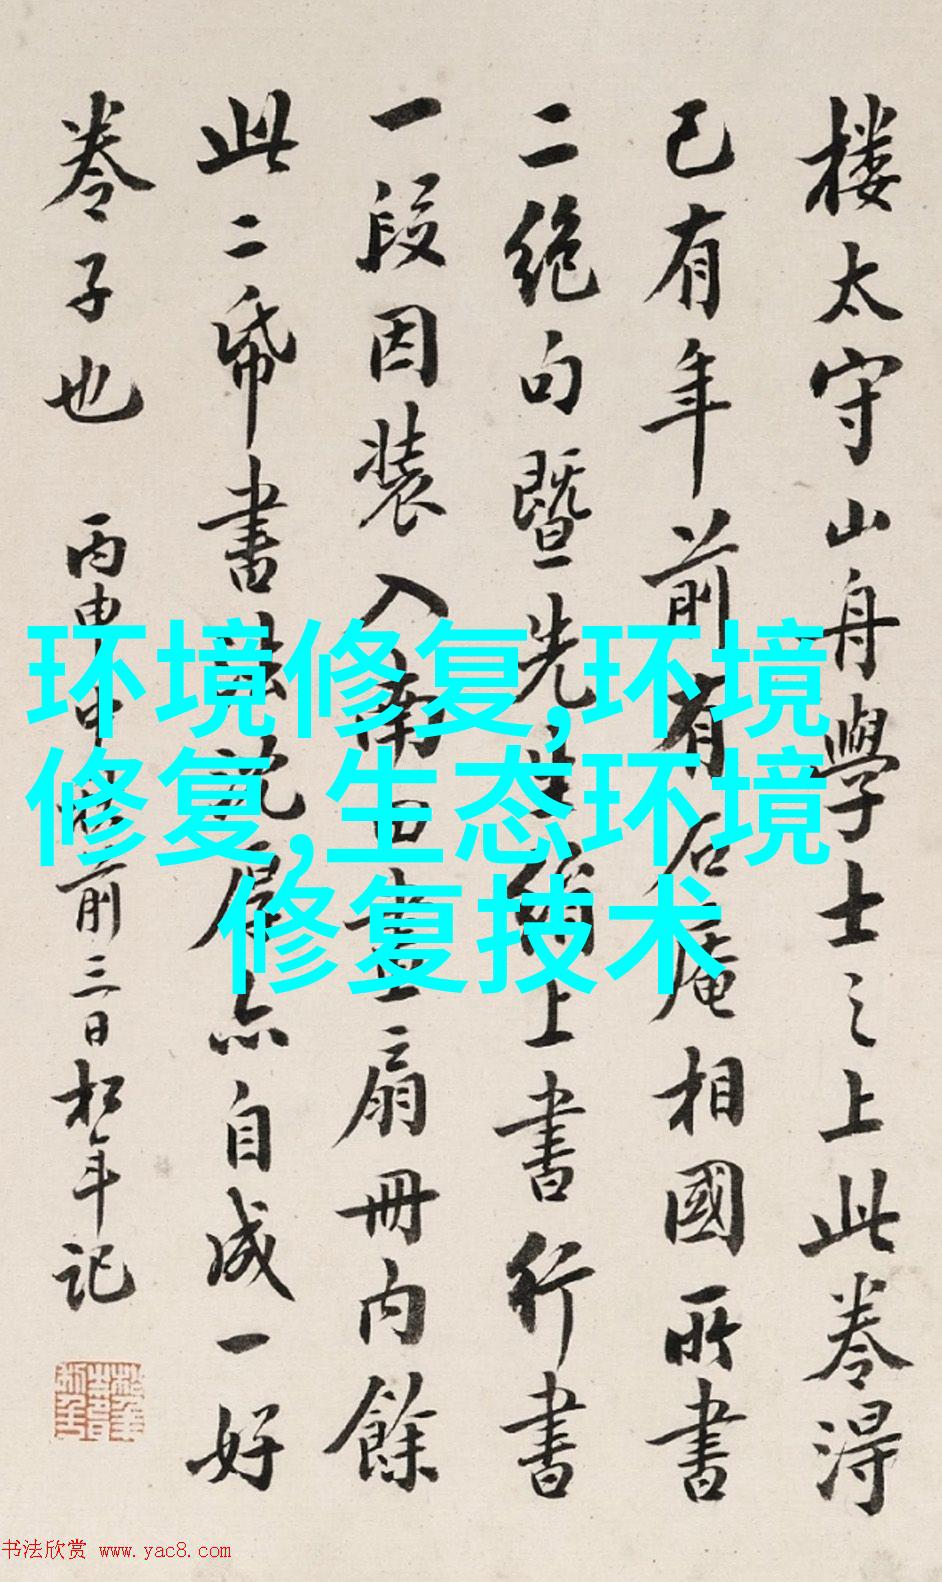 楼太守山舟學士之上此卷淂
已有年前有石庵相國所書
二絶句暨先生 上書行書
一段因裝入南田書畫扇冊内餘
此二帋書法 厚亦自成一好
卷子也
丙申中 前三日松年記
环境修复,环境
修复,生态环境
修复技术
书法欣赏 www.yac8.com